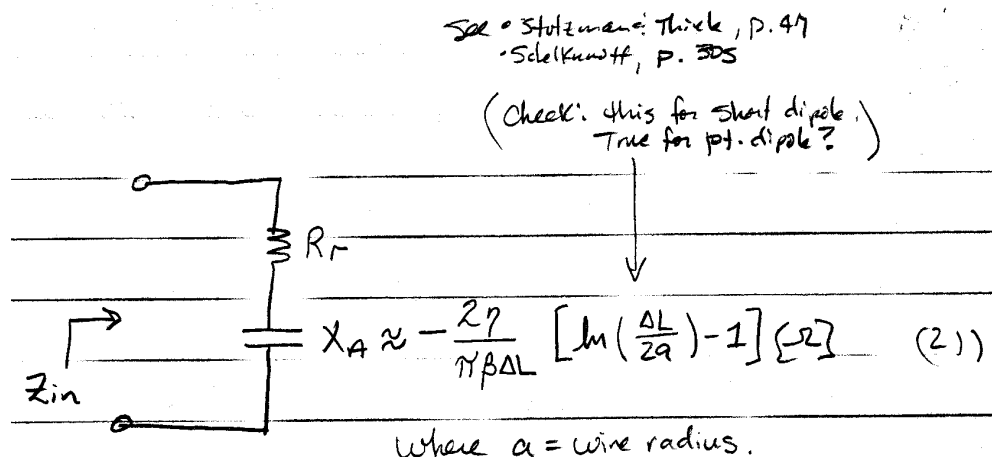 See • Stutzman & Thiele, p. 47
• Schelkunoff, p. 305
(Check: this for short dipole.
True for pt. dipole?)
R_r
X_A ≈ - 2η / πβΔL [ln(ΔL/2a) - 1] {Ω} (2))
Z_in
where a = wire radius.